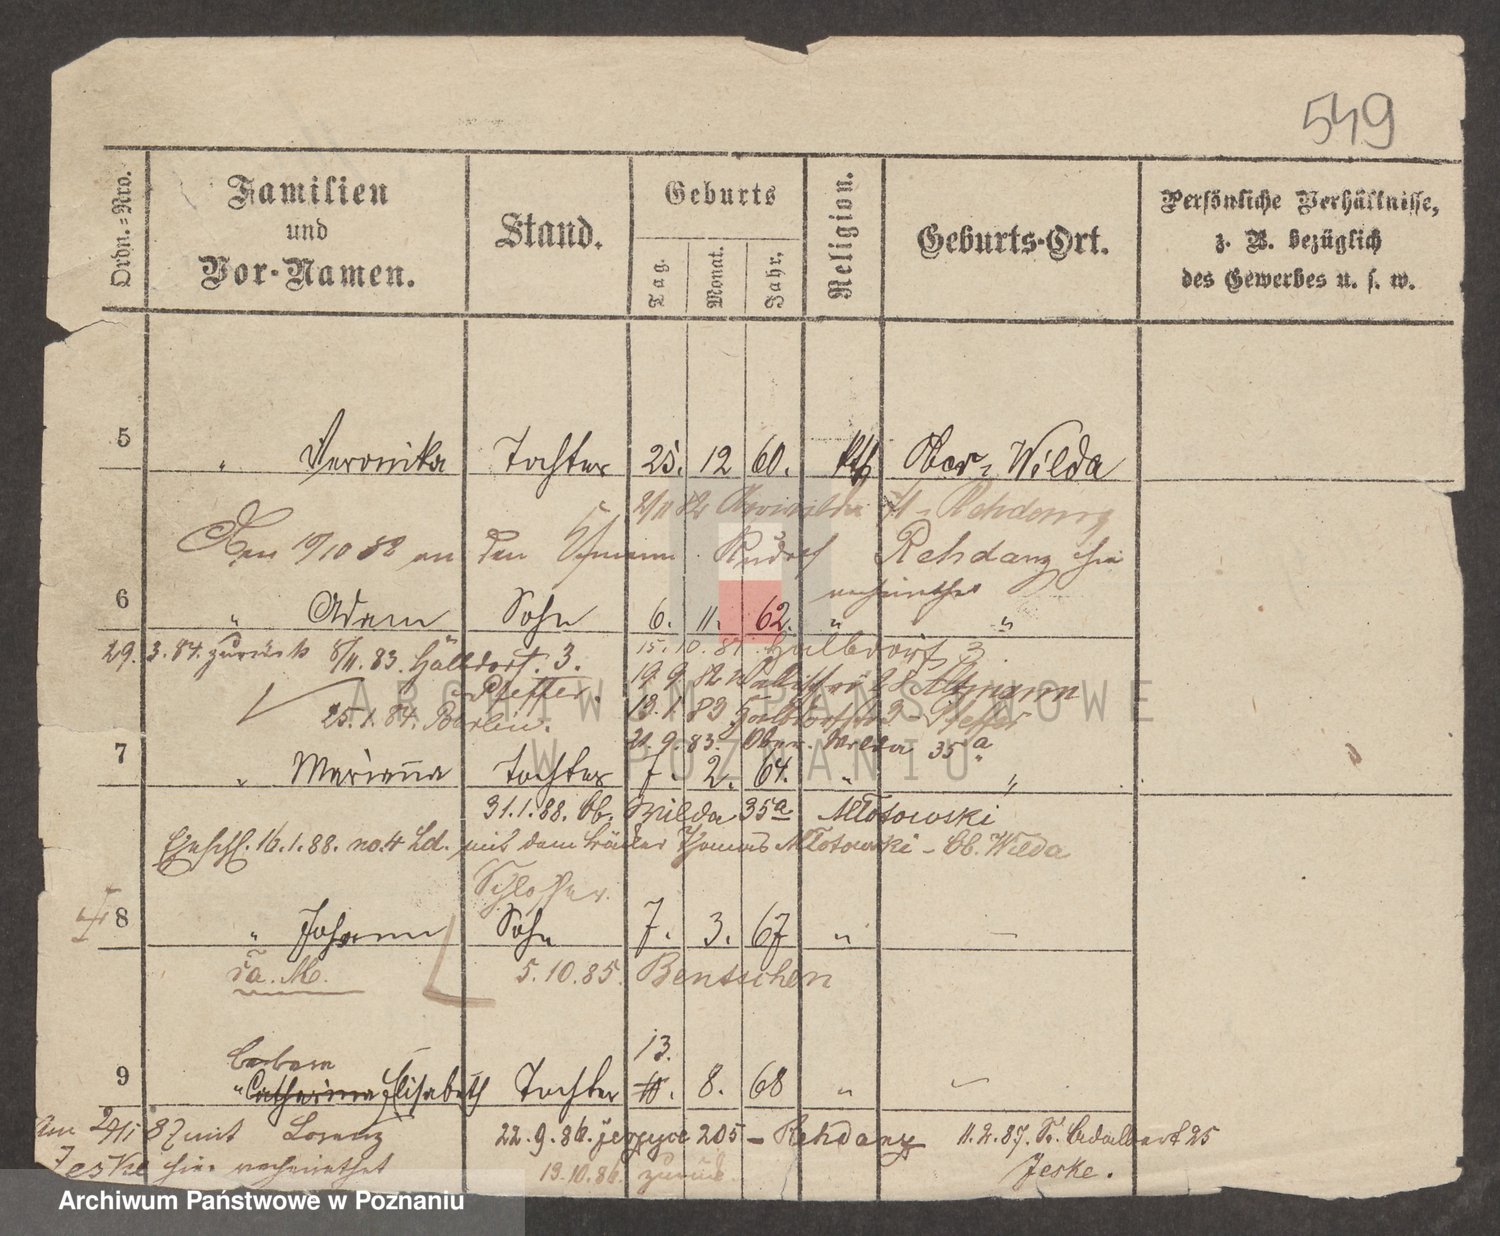 549
Ordn.=Nro.
Familien
und
Vor-Namen.
Stand.
Geburts
Tag.
Monat.
Jahr.
Religion.
Geburts-Ort.
Persönliche Verhältnisse,
z. B. bezüglich
des Gewerbes u. s. w.
5 " Veronika Tochter 25. 12 60. Kth Ober-Wilda
2/11 82 Rehdanz
Den 19/10 82 an den Rudolf Rehdanz hier
verheirathet
6 " Adam Sohn 6. 11. 62. " "
29. 3. 84. zurück 8/11. 83. Halbdorf. 3. 15. 10. 81. Halbdorf 3
Pfeffer. 19. 9 82 Altmann
25. 1. 84. Berlin. 13. 1. 83 Pfeffer
21. 9. 83. Ober-Wilda 35a.
7 " Marianna Tochter 7. 2. 64. " "
31. 1. 88. Ob. Wilda 35a Młotowski
16. 1. 88. no. 4 Ld. mit dem Thomas Młotowski - Ob. Wilda
Schlosser.
8 " Johann Sohn 7. 3. 67 " —
5. 10. 85. Bentschen
Barbara 13.
9 " Catharina Elisabeth Tochter 8. 68 "
Am 2/11 87 mit Lorenz 22. 9. 86. Jerzyce 205 - Rehdanz 11. 2. 87. St. Adalbert 25
Jeske hier verheirathet 19. 10. 86. zurück. Jeske.
ARCHIWUM PAŃSTWOWE
W POZNANIU
Archiwum Państwowe w Poznaniu